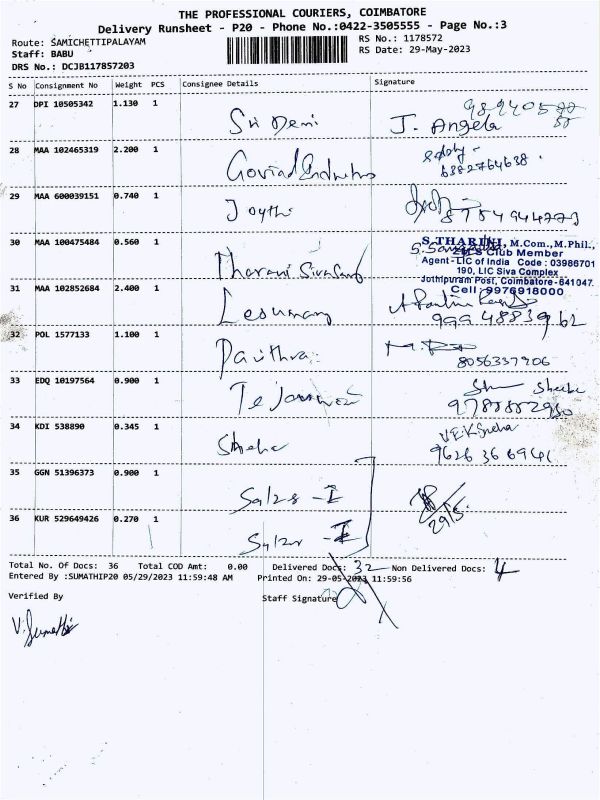 THE PROFESSIONAL COURIERS, COIMBATORE
Delivery Runsheet - P20 - Phone No.:0422-3505555 - Page No.:3
Route: SAMICHETTIPALAYAM
Staff: BABU
DRS No.: DCJB117857203
RS No.: 1178572
RS Date: 29-May-2023
S No Consignment No Weight PCS Consignee Details Signature
27 DPI 10505342 1.130 1 Sri Devi J. Angela
28 MAA 102465319 2.200 1 6382764638.
29 MAA 600039151 0.740 1 Joythi
30 MAA 100475484 0.560 1
S.THARINI, M.Com., M.Phil.,
ZM'S Club Member
Agent - LIC of India Code : 03986701
190, LIC Siva Complex
Jothipuram Post, Coimbatore-641047.
Cell: 9976918000
31 MAA 102852684 2.400 1 999 48839 62
32 POL 1577133 1.100 1 Pavithra 8056337906
33 EDQ 10197564 0.900 1 Sheeba
34 KDI 538890 0.345 1 Sneha V.E.K Sneha
9626 36 6941
35 GGN 51396373 0.900 1 Sales - I 29/5
36 KUR 529649426 0.270 1 Sales - I
Total No. Of Docs: 36 Total COD Amt: 0.00 Delivered Docs: 32 Non Delivered Docs: 4
Entered By :SUMATHIP20 05/29/2023 11:59:48 AM Printed On: 29-05-2023 11:59:56
Verified By Staff Signature
V. Sumathi